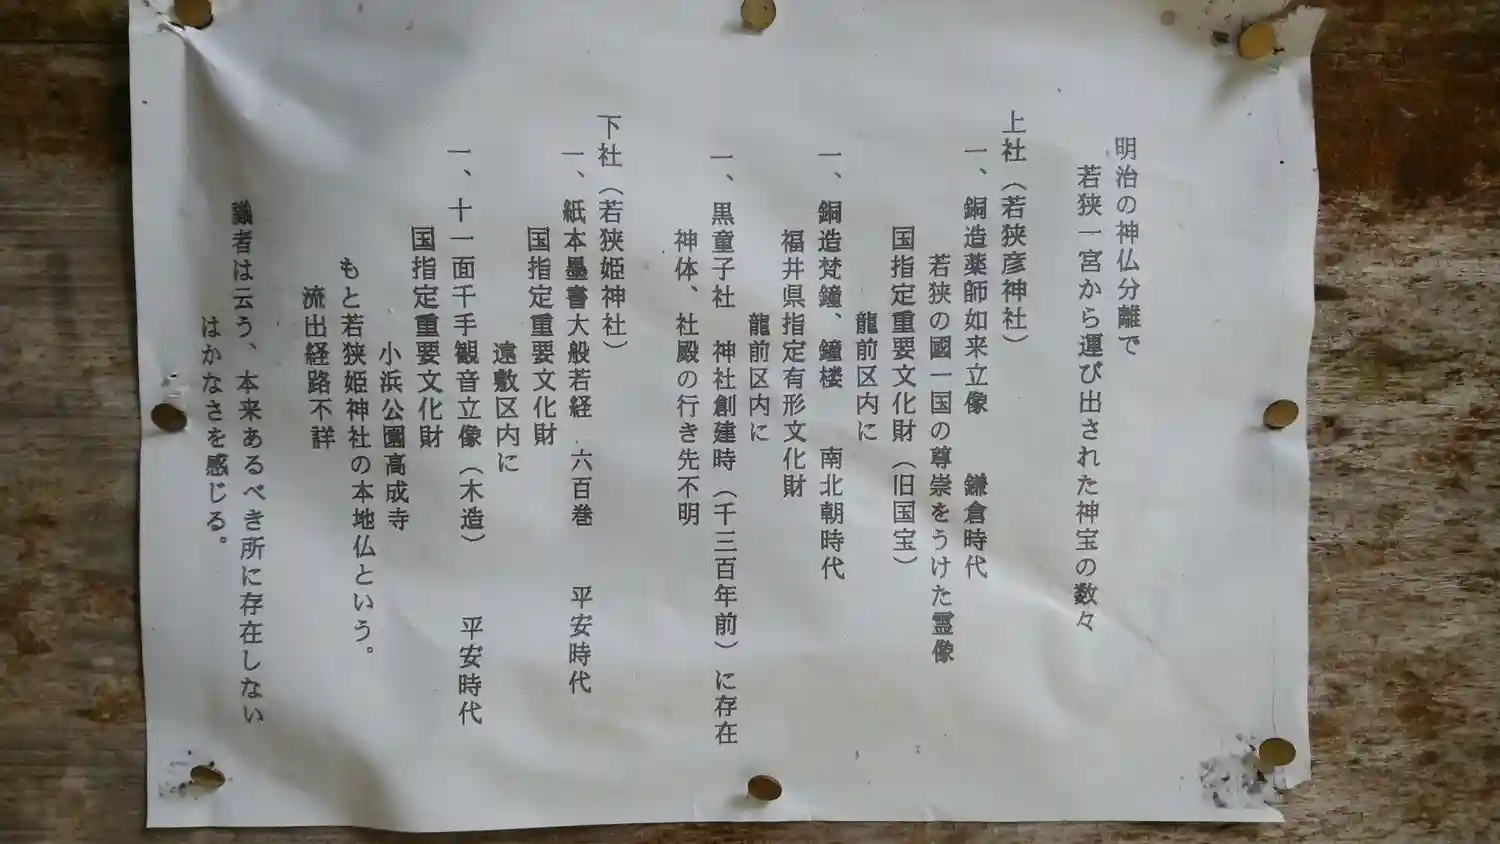 明治の神仏分離で
若狭一宮から運び出された神宝の数々
上社（若狭彦神社）
一、銅造薬師如来立像　　鎌倉時代
若狭の國一国の尊崇をうけた霊像
国指定重要文化財（旧国宝）
龍前区内に
一、銅造梵鐘、鐘楼　　南北朝時代
福井県指定有形文化財
龍前区内に
一、黒童子社　神社創建時（千三百年前）に存在
神体、社殿の行き先不明
下社（若狭姫神社）
一、紙本墨書大般若経　六百巻　　平安時代
国指定重要文化財
遠敷区内に
一、十一面千手観音立像（木造）　　平安時代
国指定重要文化財
小浜公園高成寺
もと若狭姫神社の本地仏という。
流出経路不詳
識者は云う、本来あるべき所に存在しない
はかなさを感じる。